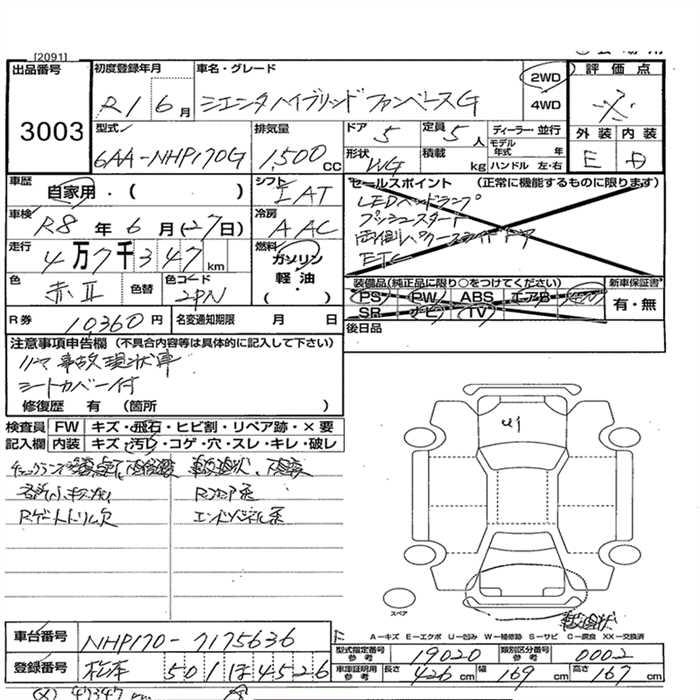 [2091]
出品番号
3003
初度登録年月
R1 6月
車名・グレード
シエンタハイブリッド ファンベースG
2WD
4WD
評価点
外装 内装
E D
型式
6AA-NHP170G
排気量
1,500cc
ドア 5
定員 5人
形状 WG
積載 kg
ディーラー・並行
モデル年式 年
ハンドル 左・右
車歴
自家用・( )
シフト
IAT
車検
R8年6月(27日)
冷房
AAC
走行
4万7千347km
燃料
ガソリン
軽油
・( )
色
赤II
色替
色コード
2PN
R券 10360円
名変通知期限 月 日
セールスポイント (正常に機能するものに限ります)
LEDヘッドランプ
プッシュスタート
両側パワースライドドア
ETC
装備品(純正品に限り○をつけてください)
PS PW ABS エアB
SR ナビ TV
新車保証書
有・無
後日品
注意事項申告欄(不具合内容等は具体的に記入して下さい)
リヤ事故現状車
シートカバー付
修復歴 有(箇所 )
検査員記入欄
FW キズ・飛石・ヒビ割・リペア跡・×要
内装 キズ・汚れ・コゲ・穴・スレ・キレ・破レ
Rゲートトリム欠
Rフロア系
エンドパネル系
U1
スペア
A—キズ E—エクボ U—凹み W—補修跡 S—サビ C—腐食 XX—交換済
車台番号
NHP170-7175636
登録番号
松本 501 ほ 4526
型式指定番号参考 19020
類別区分番号参考 0002
車庫証明用参考 長さ 426cm 幅 169cm 高さ 167cm
47347km